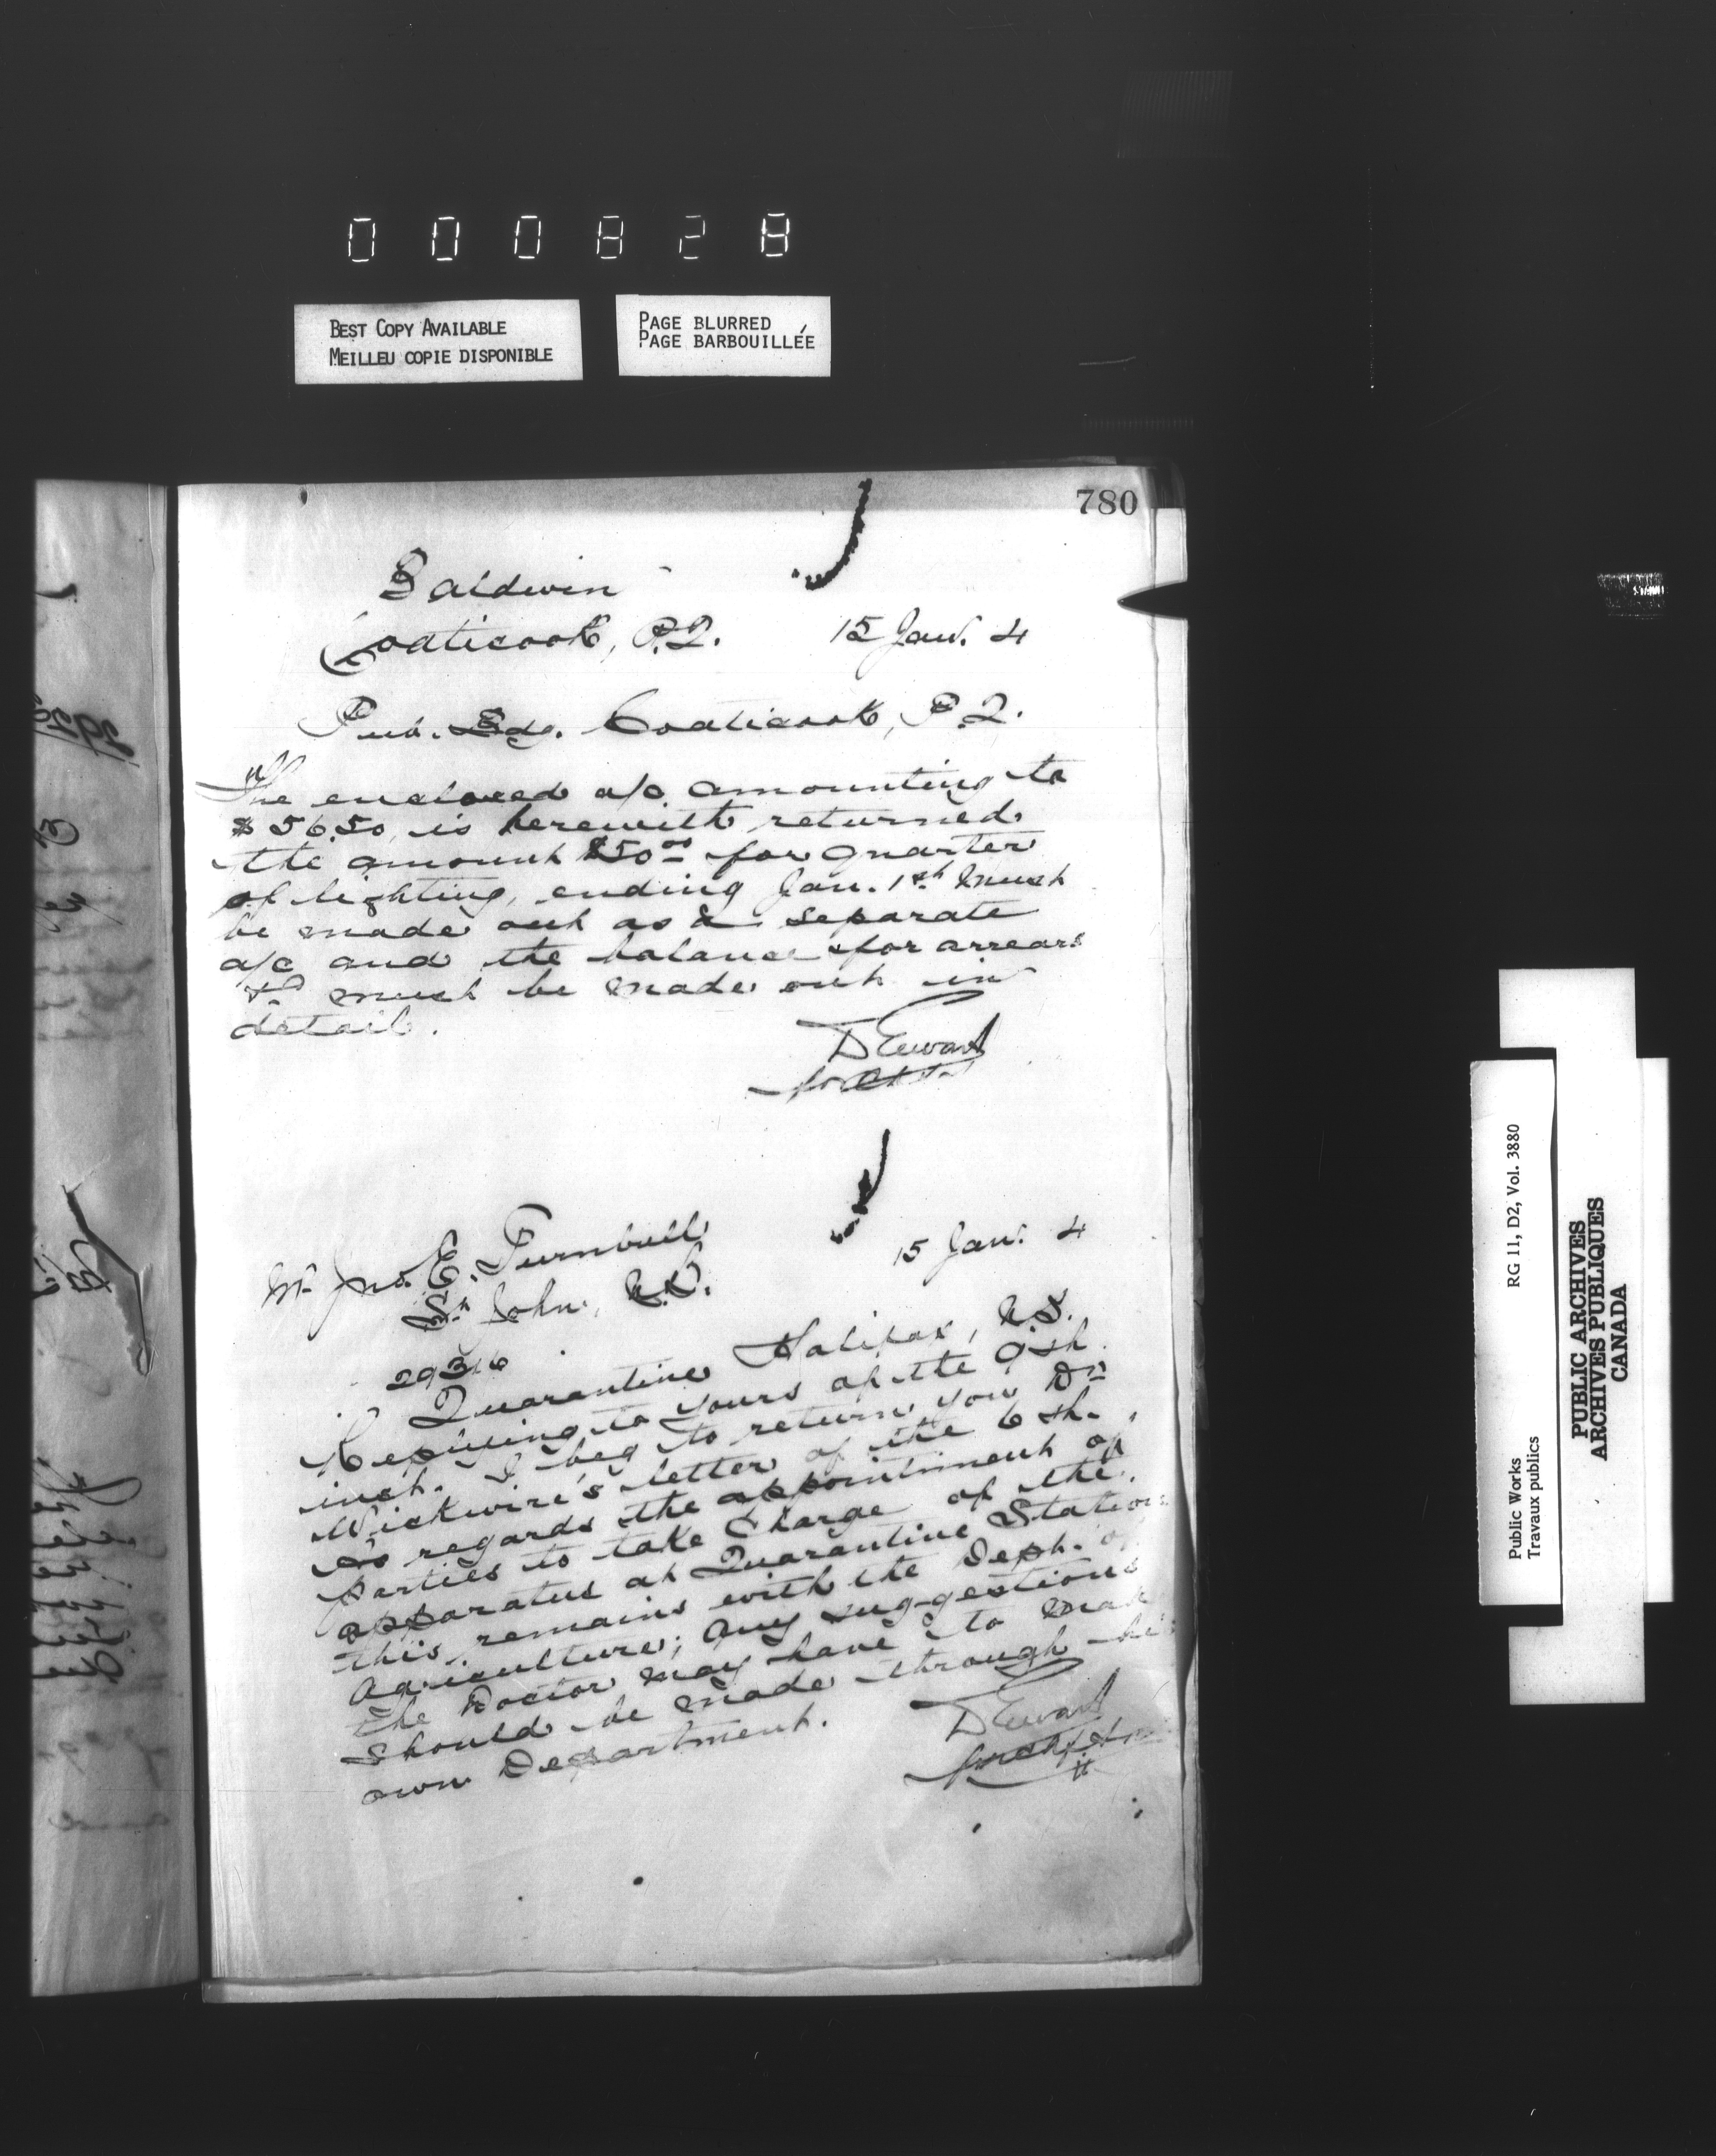 000828
BEST COPY AVAILABLE
MEILLEU COPIE DISPONIBLE
PAGE BLURRED
PAGE BARBOUILLÉE
780
Baldwin
Coaticook, P.Q. 15 Jan. 4
Pub. Bdg. Coaticook, P.Q.
The enclosed a/c amounting to
$56.50, is herewith returned.
the amount $50.00 for quarter
of lighting, ending Jan. 1st must
be made out as a separate
a/c and the balance for arrears
&c must be made out in
detail.
D Ewart
Mr. Jno. E. Turnbull
St. John, N.B. 15 Jan. 4
29316
Quarantine Halifax, N.S.
Replying to yours of the 9th
inst. I beg to return you Dr
Wickwire's letter of the 6th.
As regards the appointment of
parties to take charge of the
apparatus at Quarantine Station
this remains with the Dept. of
Agriculture; any suggestions
the Doctor may have to make
should be made through his
own Department.
D Ewart
Public Works
Travaux publics
RG 11, D2, Vol. 3880
PUBLIC ARCHIVES
ARCHIVES PUBLIQUES
CANADA